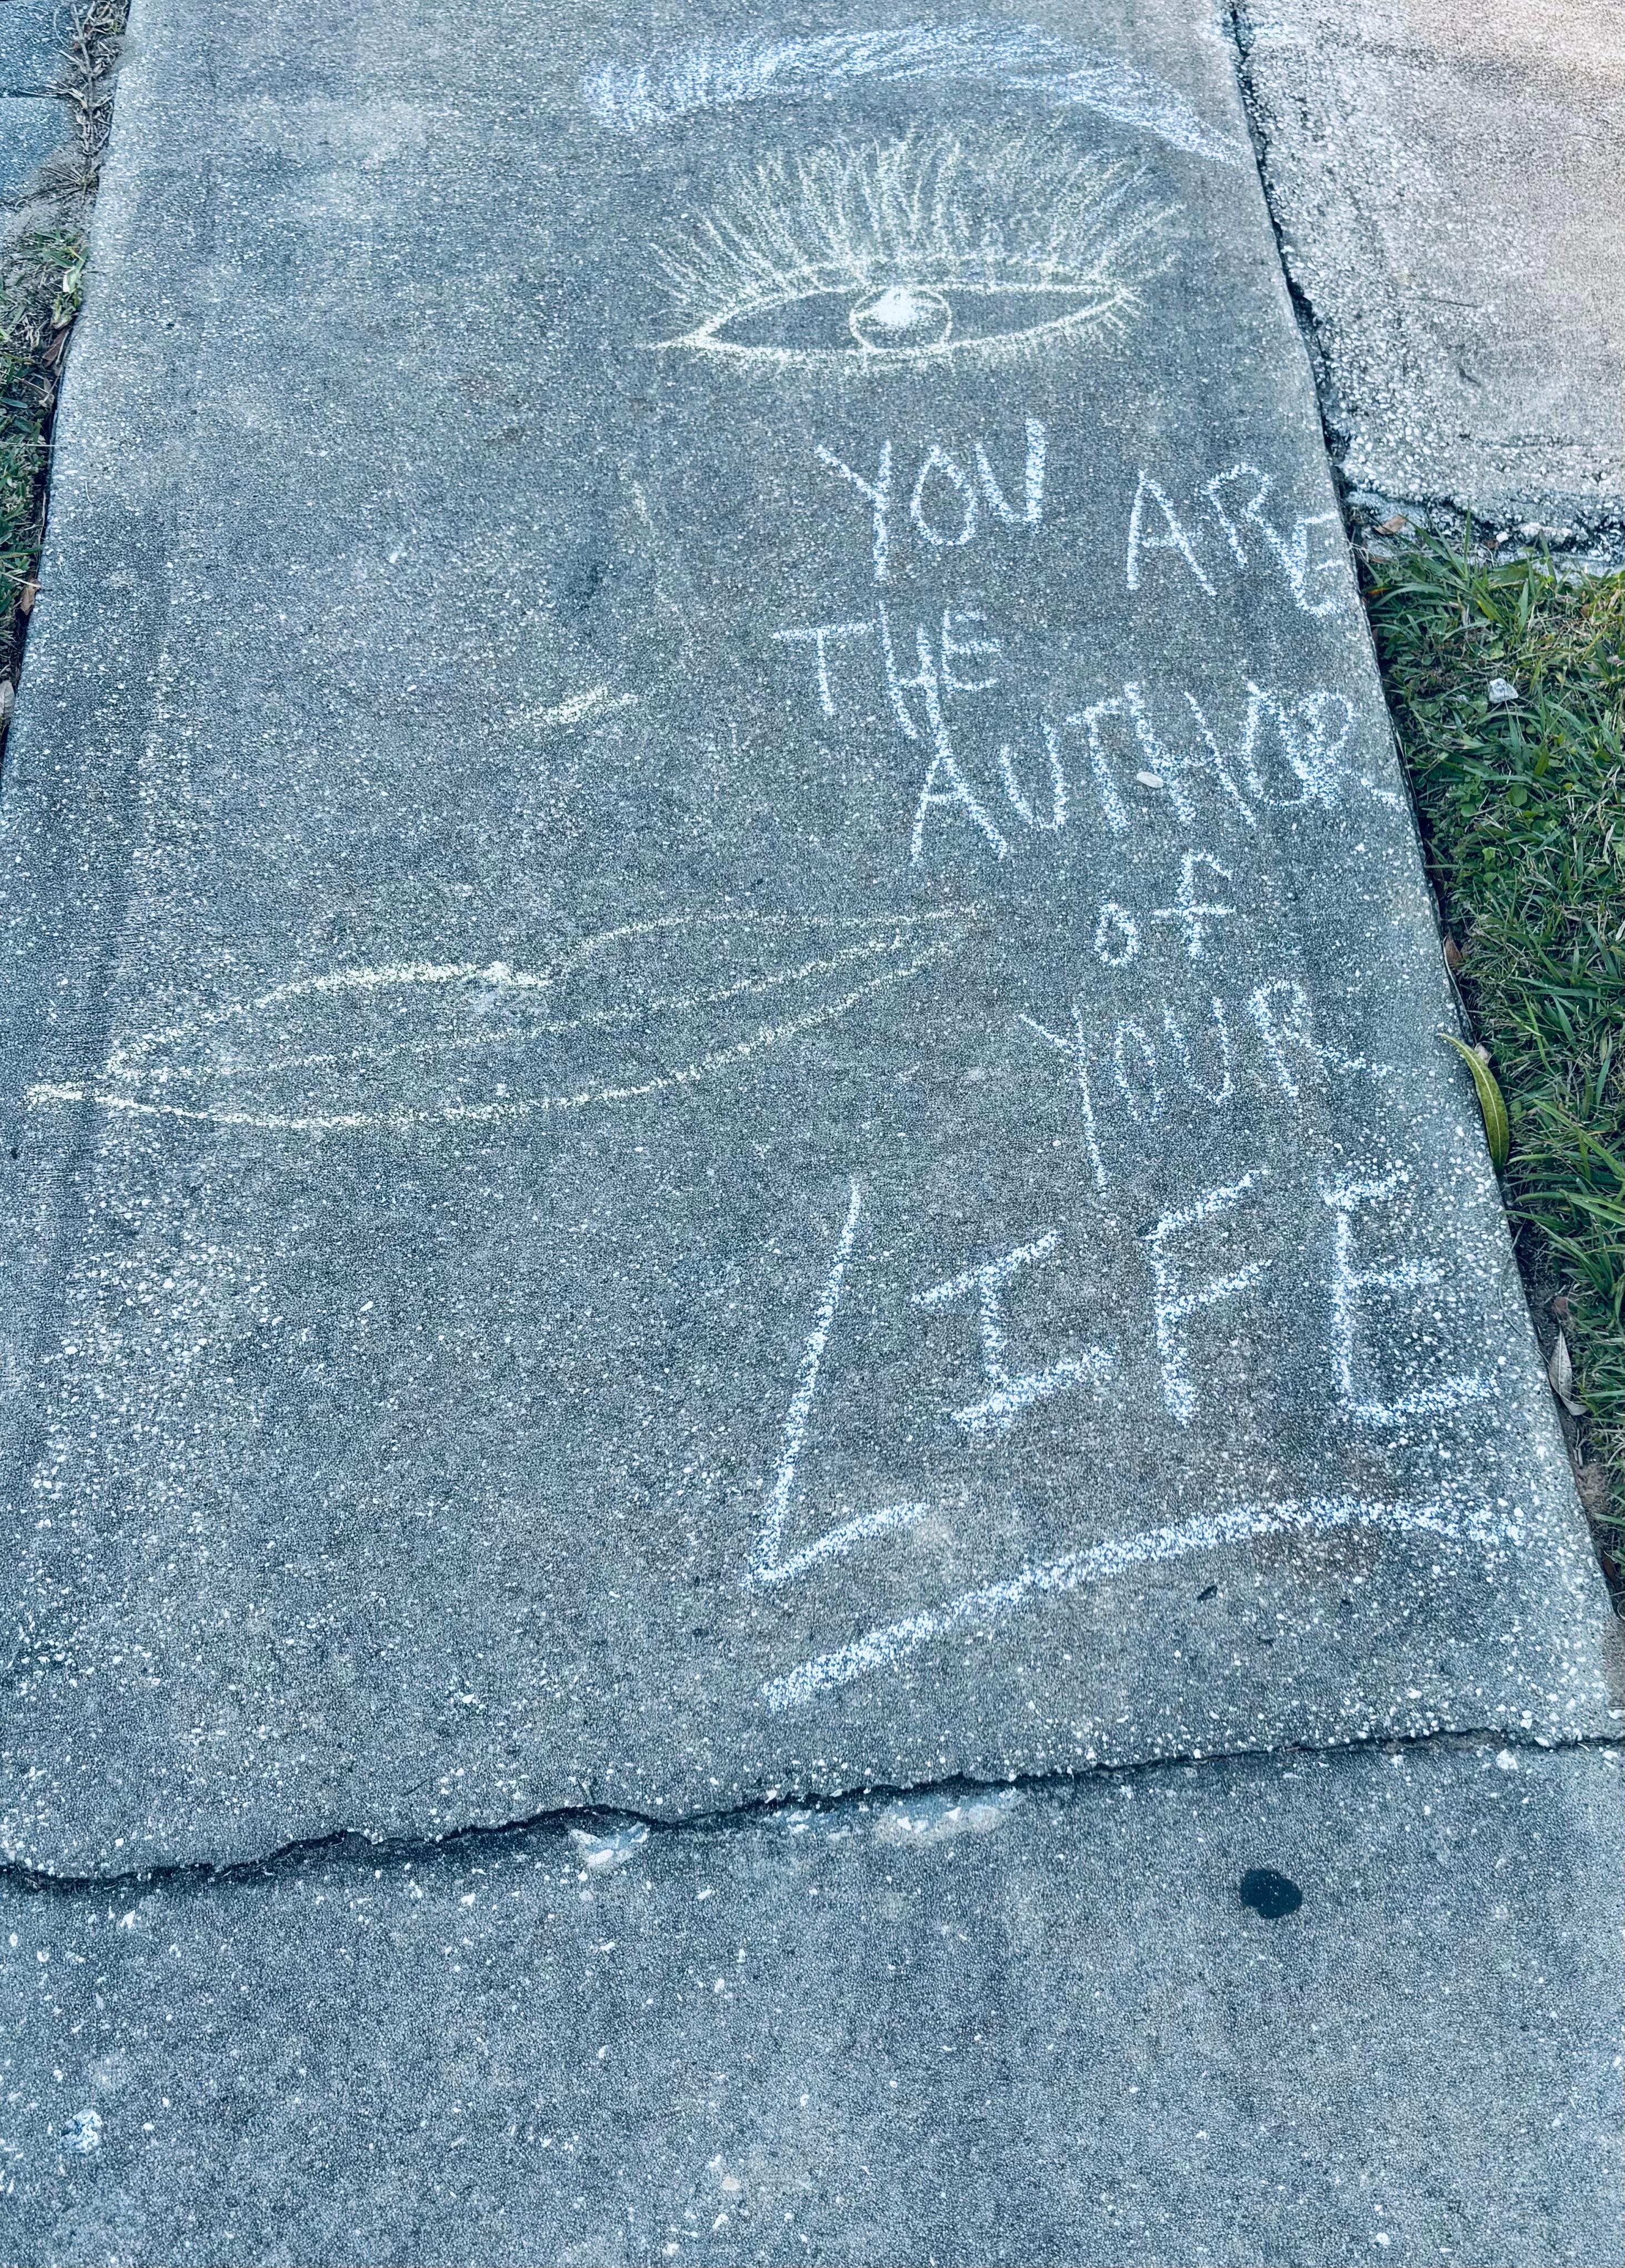 YOU ARE
THE
AUTHOR
of
YOUR
LIFE